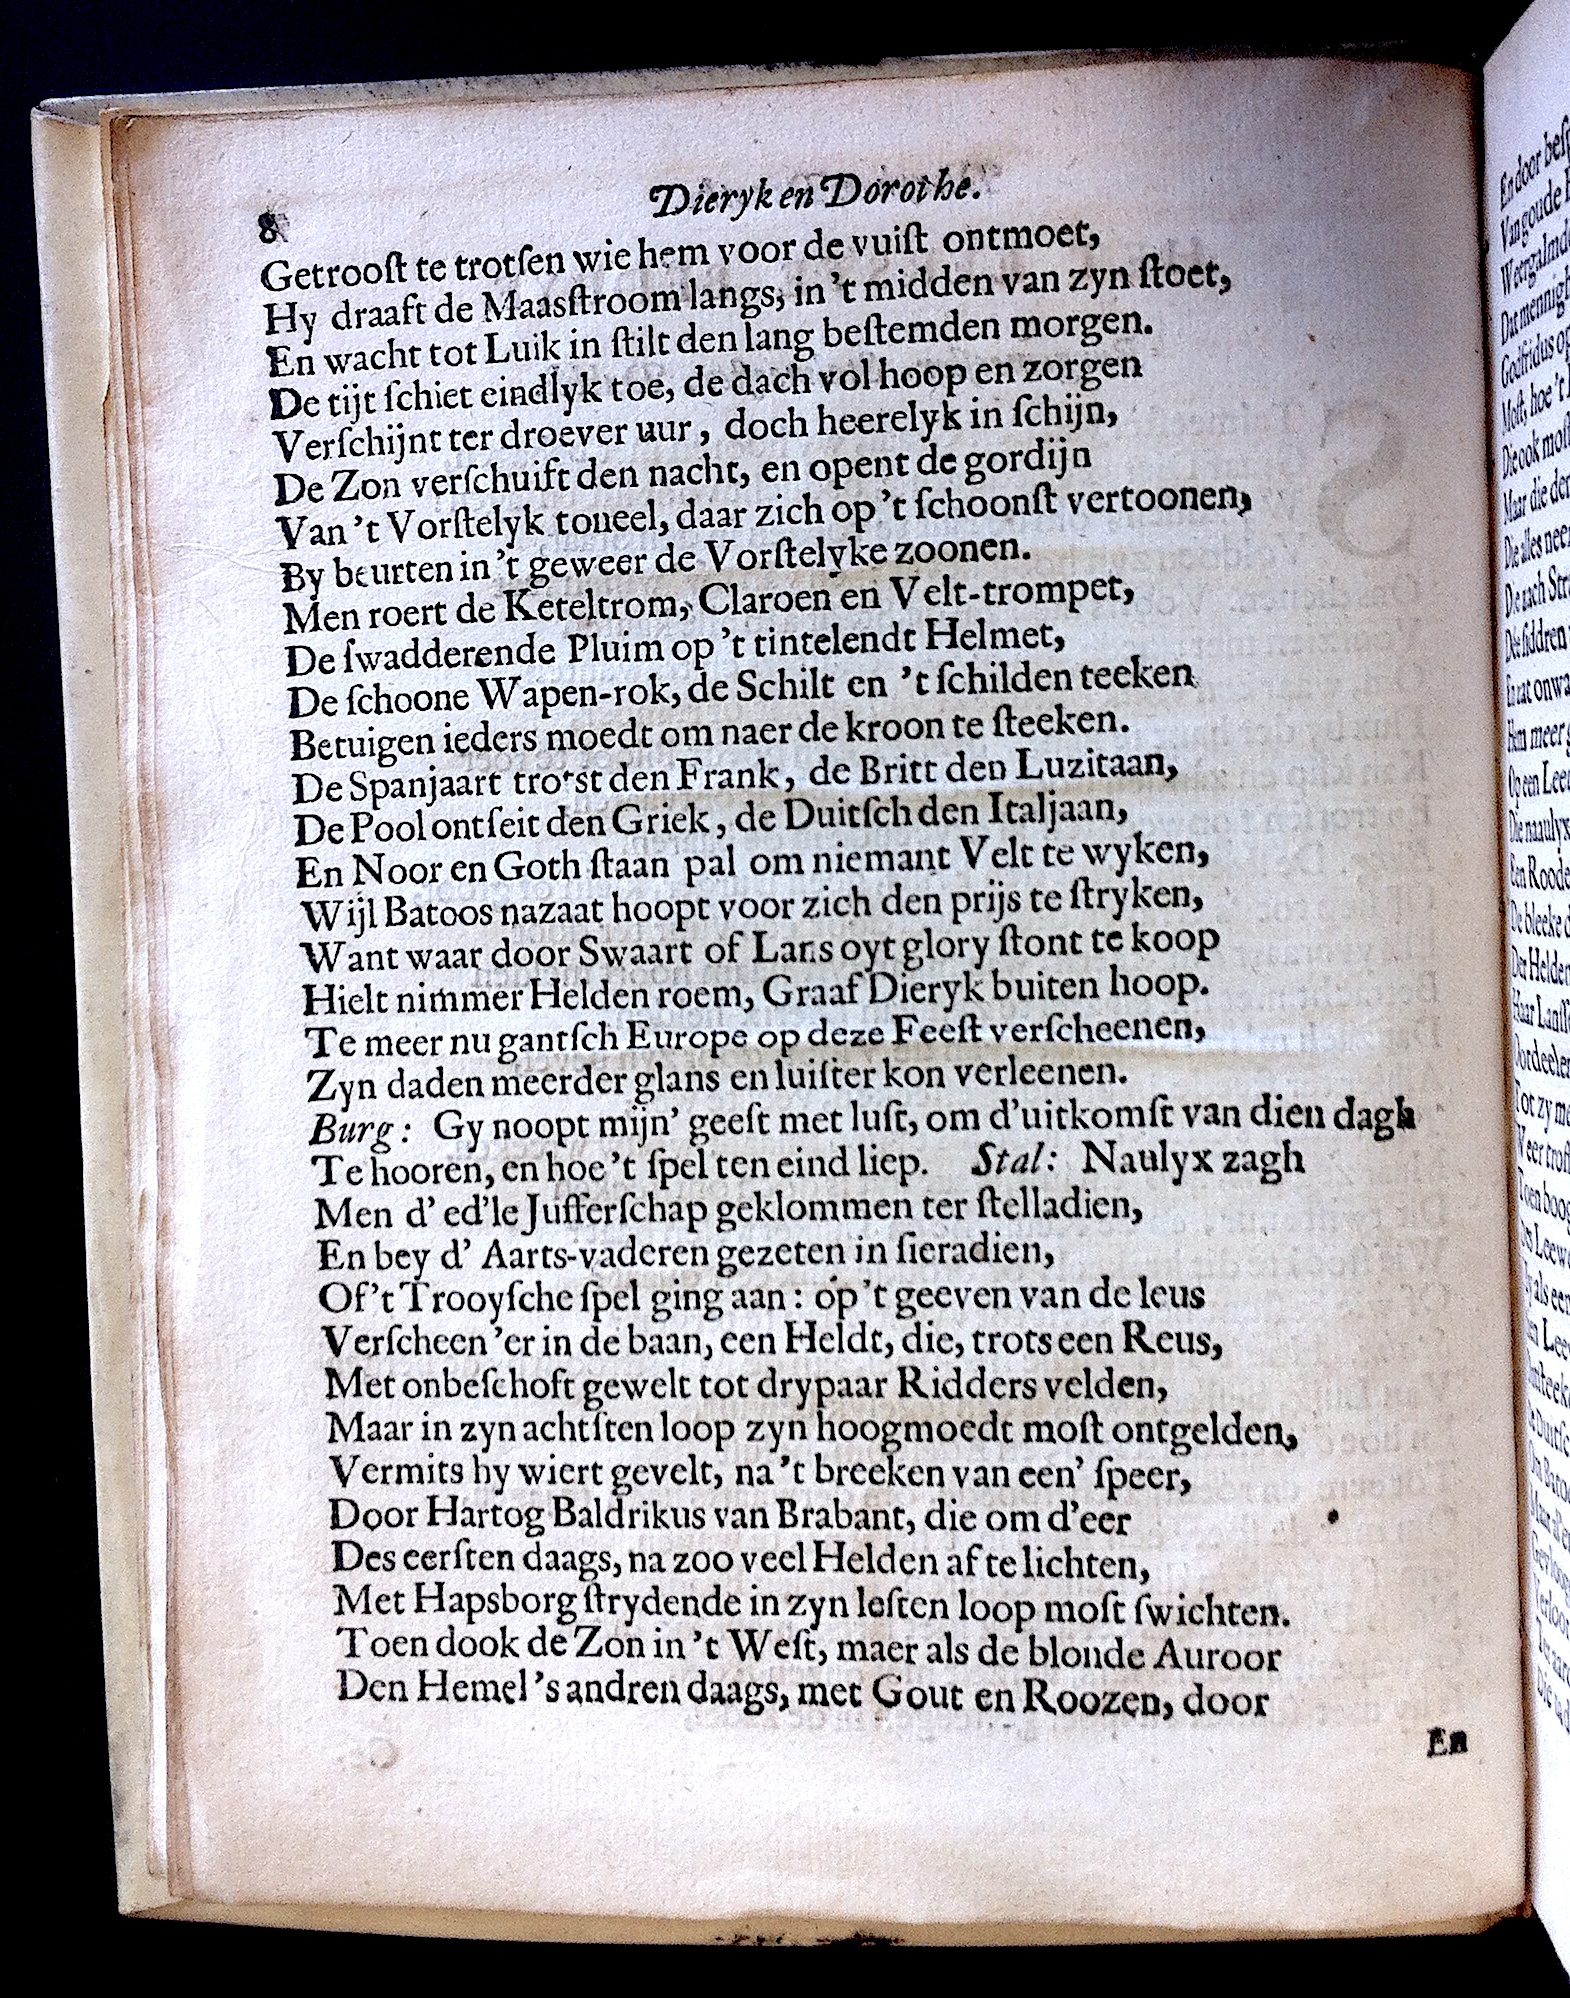 8
Dieryk en Dorothe.
Getrooſt te trotſen wie hem voor de vuiſt ontmoet,
Hy draaft de Maasſtroom langs, in 't midden van zyn ſtoet,
En wacht tot Luik in ſtilt den lang beſtemden morgen.
De tijt ſchiet eindlyk toe, de dach vol hoop en zorgen
Verſchijnt ter droever uur, doch heerelyk in ſchijn,
De Zon verſchuift den nacht, en opent de gordijn
Van 't Vorſtelyk toneel, daar zich op 't ſchoonſt vertoonen,
By beurten in 't geweer de Vorſtelyke zoonen.
Men roert de Keteltrom, Claroen en Velt-trompet,
De ſwadderende Pluim op 't tintelendt Helmet,
De ſchoone Wapen-rok, de Schilt en 't ſchilden teeken
Betuigen ieders moedt om naer de kroon te ſteeken.
De Spanjaart trotst den Frank, de Britt den Luzitaan,
De Pool ontſeit den Griek, de Duitſch den Italjaan,
En Noor en Goth ſtaan pal om niemant Velt te wyken,
Wijl Batoos nazaat hoopt voor zich den prijs te ſtryken,
Want waar door Swaart of Lans oyt glory ſtont te koop
Hielt nimmer Helden roem, Graaf Dieryk buiten hoop.
Te meer nu gantſch Europe op deze Feeſt verſcheenen,
Zyn daden meerder glans en luiſter kon verleenen.
Burg: Gy noopt mijn' geeſt met luſt, om d'uitkomſt van dien dagh
Te hooren, en hoe 't ſpel ten eind liep. Stal: Naulyx zagh
Men d' ed'le Jufferſchap geklommen ter ſtelladien,
En bey d' Aarts-vaderen gezeten in ſieradien,
Of 't Trooyſche ſpel ging aan: op 't geeven van de leus
Verſcheen 'er in de baan, een Heldt, die, trots een Reus,
Met onbeſchoft gewelt tot drypaar Ridders velden,
Maar in zyn achtſten loop zyn hoogmoedt moſt ontgelden,
Vermits hy wiert gevelt, na 't breeken van een' ſpeer,
Door Hartog Baldrikus van Brabant, die om d'eer
Des eerſten daags, na zoo veel Helden af te lichten,
Met Hapsborg ſtrydende in zyn leſten loop moſt ſwichten.
Toen dook de Zon in 't Weſt, maer als de blonde Auroor
Den Hemel 's andren daags, met Gout en Roozen, door
En